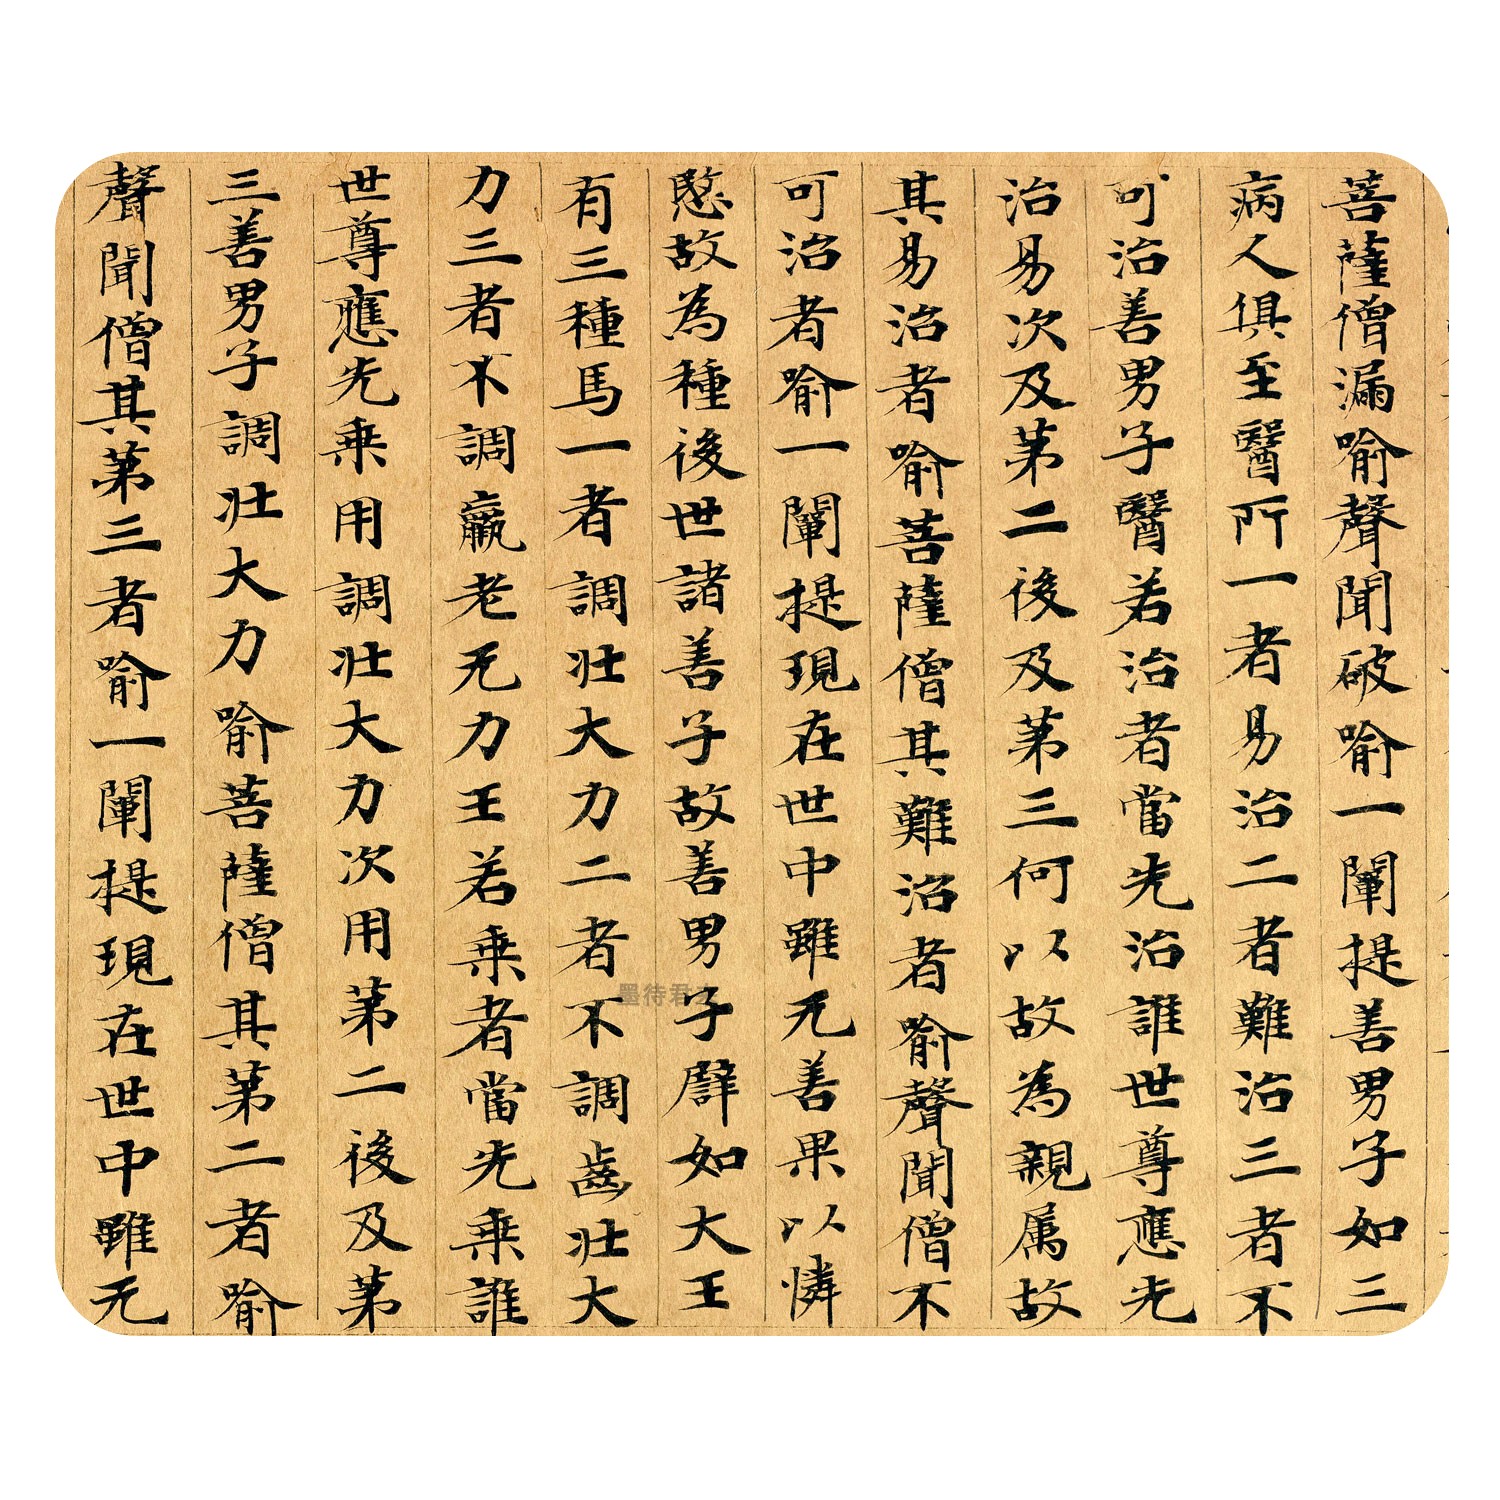 菩薩僧漏喻聲聞破喻一闡提善男子如三
病人俱至醫所一者易治二者難治三者不
可治善男子醫若治者當先治誰世尊應先
治易次及第二後及第三何以故為親属故
其易治者喻菩薩僧其難治者喻聲聞僧不
可治者喻一闡提現在世中雖无善果以憐
愍故為種後世諸善子故善男子譬如大王
有三種馬一者調壮大力二者不調齒壮大
力三者不調羸老无力王若乗者當先乗誰
世尊應先乗用調壮大力次用第二後及第
三善男子調壮大力喻菩薩僧其第二者喻
聲聞僧其第三者喻一闡提現在世中雖无
墨待君